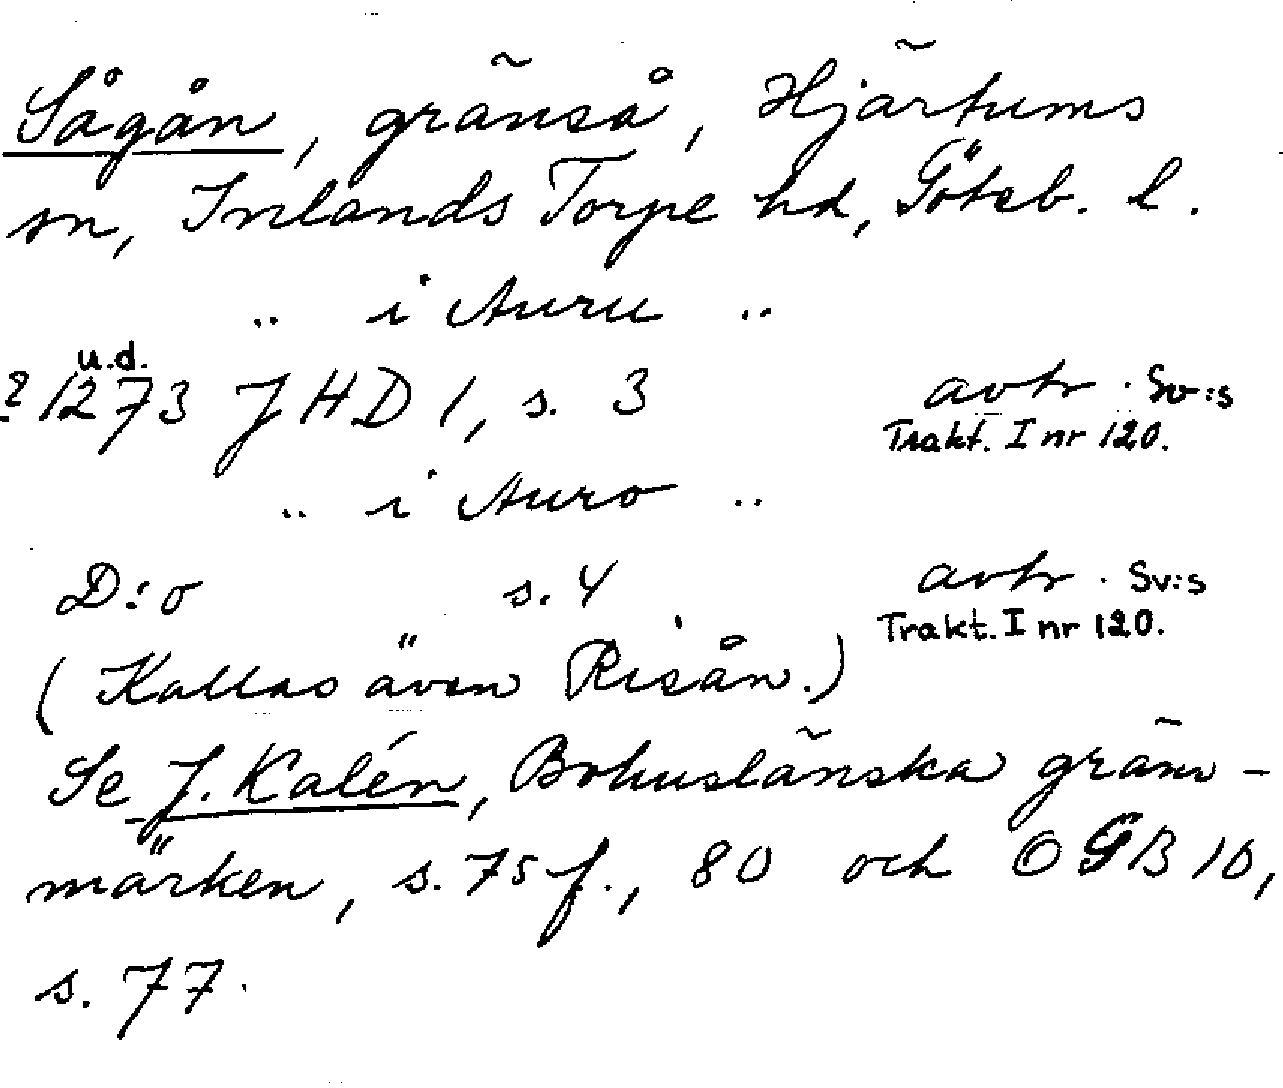 Sågån, gränså, Hjärtums
sn, Inlands Torpe hd, Göteb. l.
.. i Auru ..
u.d.
? 1273 JHD 1, s. 3 avtr. Sv:s
Trakt. I nr 120.
.. i Auro ..
D:o s. 4 avtr. Sv:s
Trakt. I nr 120.
(Kallas även Risån.)
Se J. Kalén, Bohuslänska gräns-
märken, s. 75 f., 80 och OGB 10,
s. 77.